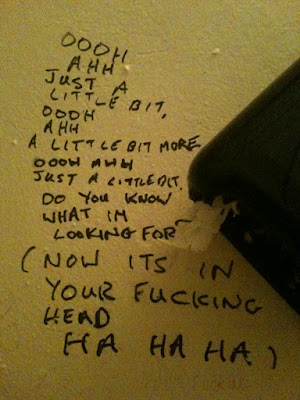 OOOH
AHH
JUST A
LITTLE BIT,
OOOH
AHH
A LITTLE BIT MORE
OOOH AHH
JUST A LITTLE BIT.
DO YOU KNOW
WHAT IM
LOOKING FOR~
(NOW ITS IN
YOUR FUCKING
HEAD
HA HA HA)